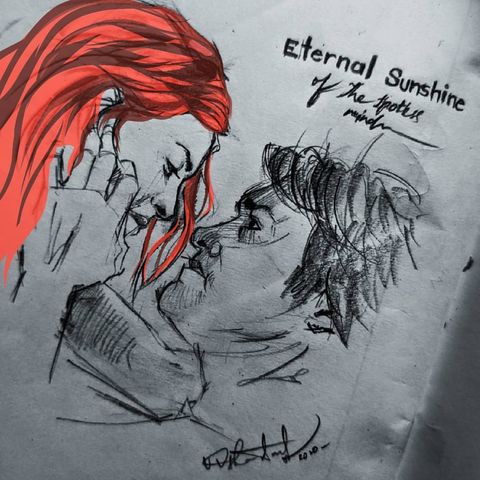 Eternal Sunshine
of the spotless
mind
2020